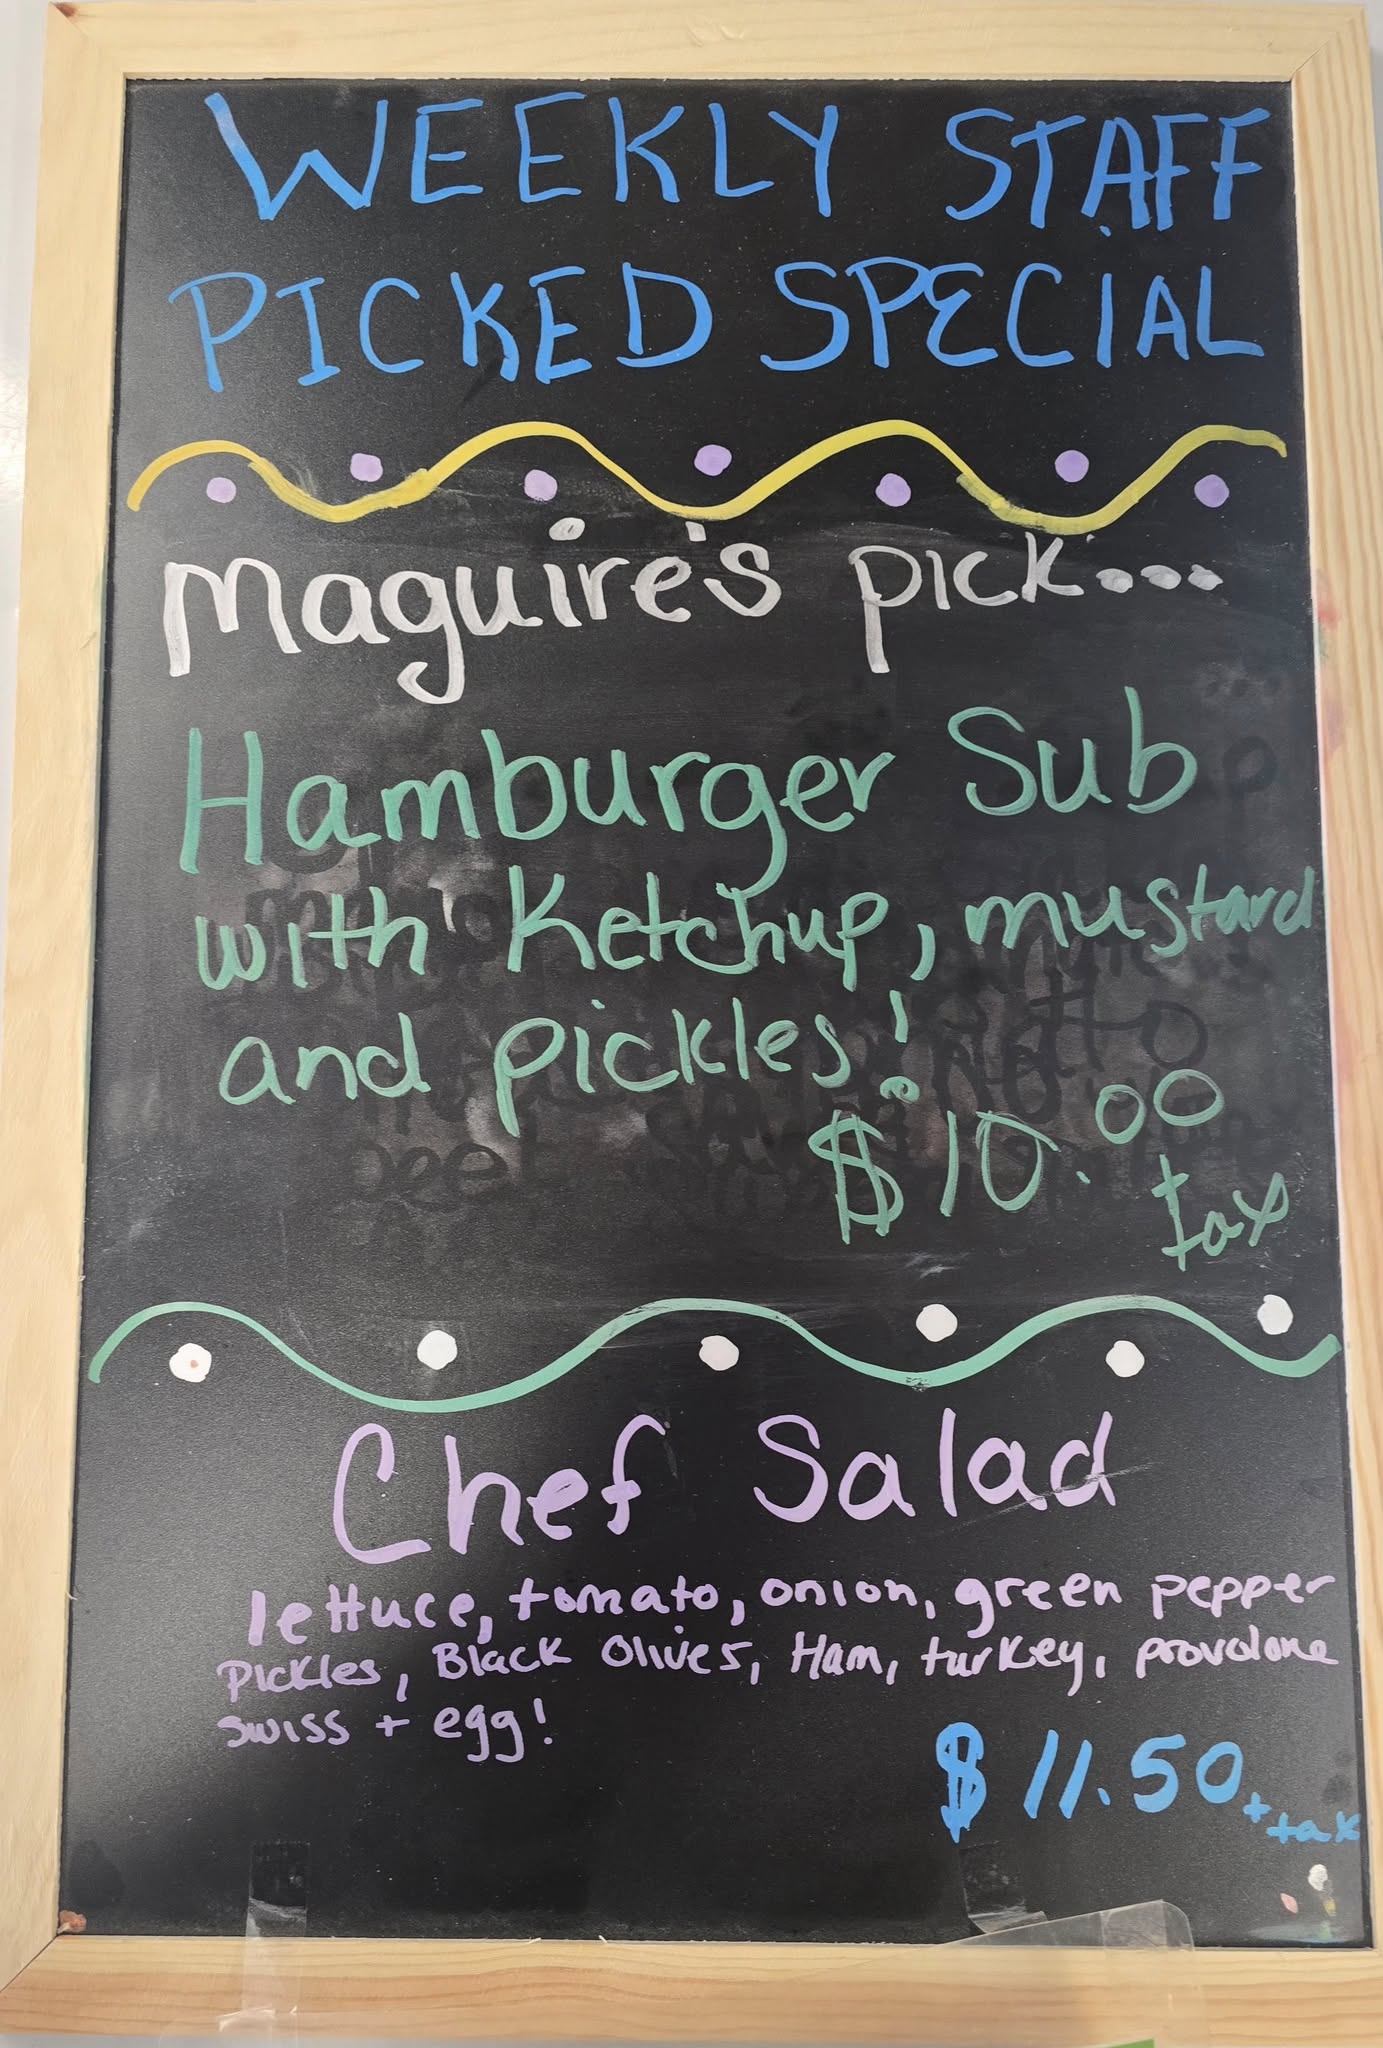 WEEKLY STAFF
PICKED SPECIAL
Maguire's pick...
Hamburger Sub
with Ketchup, mustard
and pickles!
$10.00
+ tax
Chef Salad
lettuce, tomato, onion, green pepper
Pickles, Black Olives, Ham, turkey, provolone
swiss + egg!
$11.50 + tax